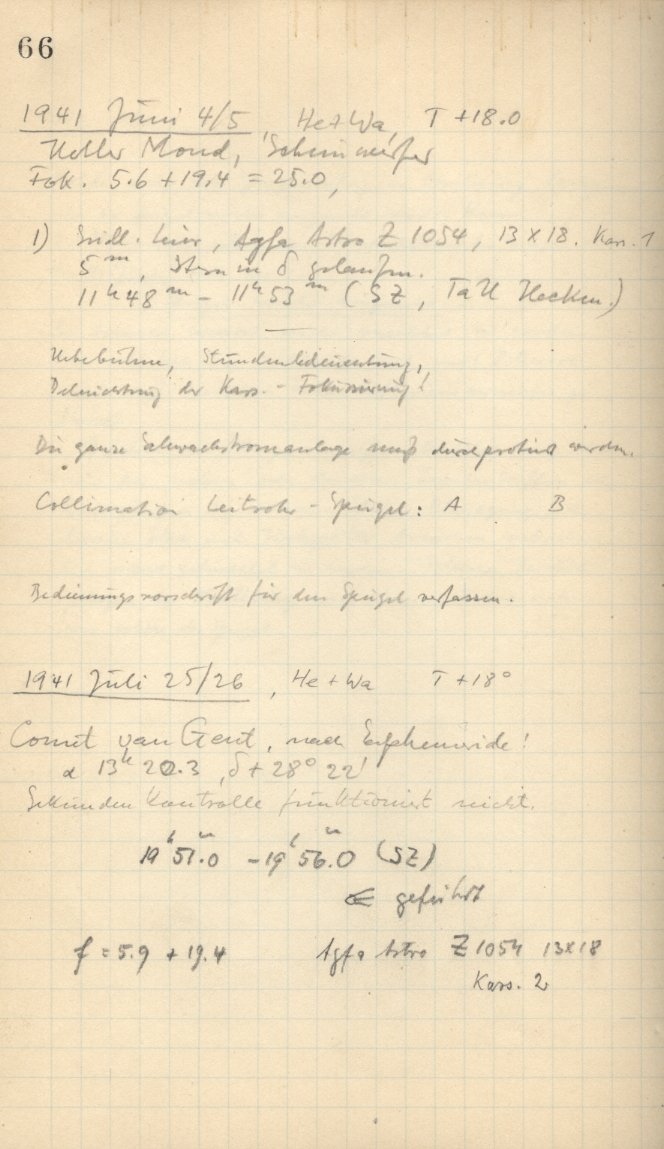 66
1941 Juni 4/5, He+Wa, T +18.0
Heller Mond, Scheinwerfer
Fok. 5.6 + 19.4 = 25.0,
1) Südl. Leier, Agfa Astro Z 1054, 13 x 18. Kass. 1
5m, Stern in δ gelaufen.
11h48m - 11h53m (SZ,
Hebebühne, Stundenbeleuchtung,
der Kass. - Fokussierung!
Die ganze Schwachstromanlage muß durchprobiert werden.
Collimation Leitrohr - Spiegel: A B
Bedienungsvorschrift für den Spiegel verfassen.
1941 Juli 25/26, He + Wa T +18°
Comet van Gent, nach Ephemeride!
α 13h 20.3, δ + 28° 22'
Sekunden Kontrolle funktioniert nicht.
19h51.0 - 19h56.0 (SZ)
geführt
f = 5.9 + 19.4 Agfa Astro Z 1054 13x18
Kass. 2